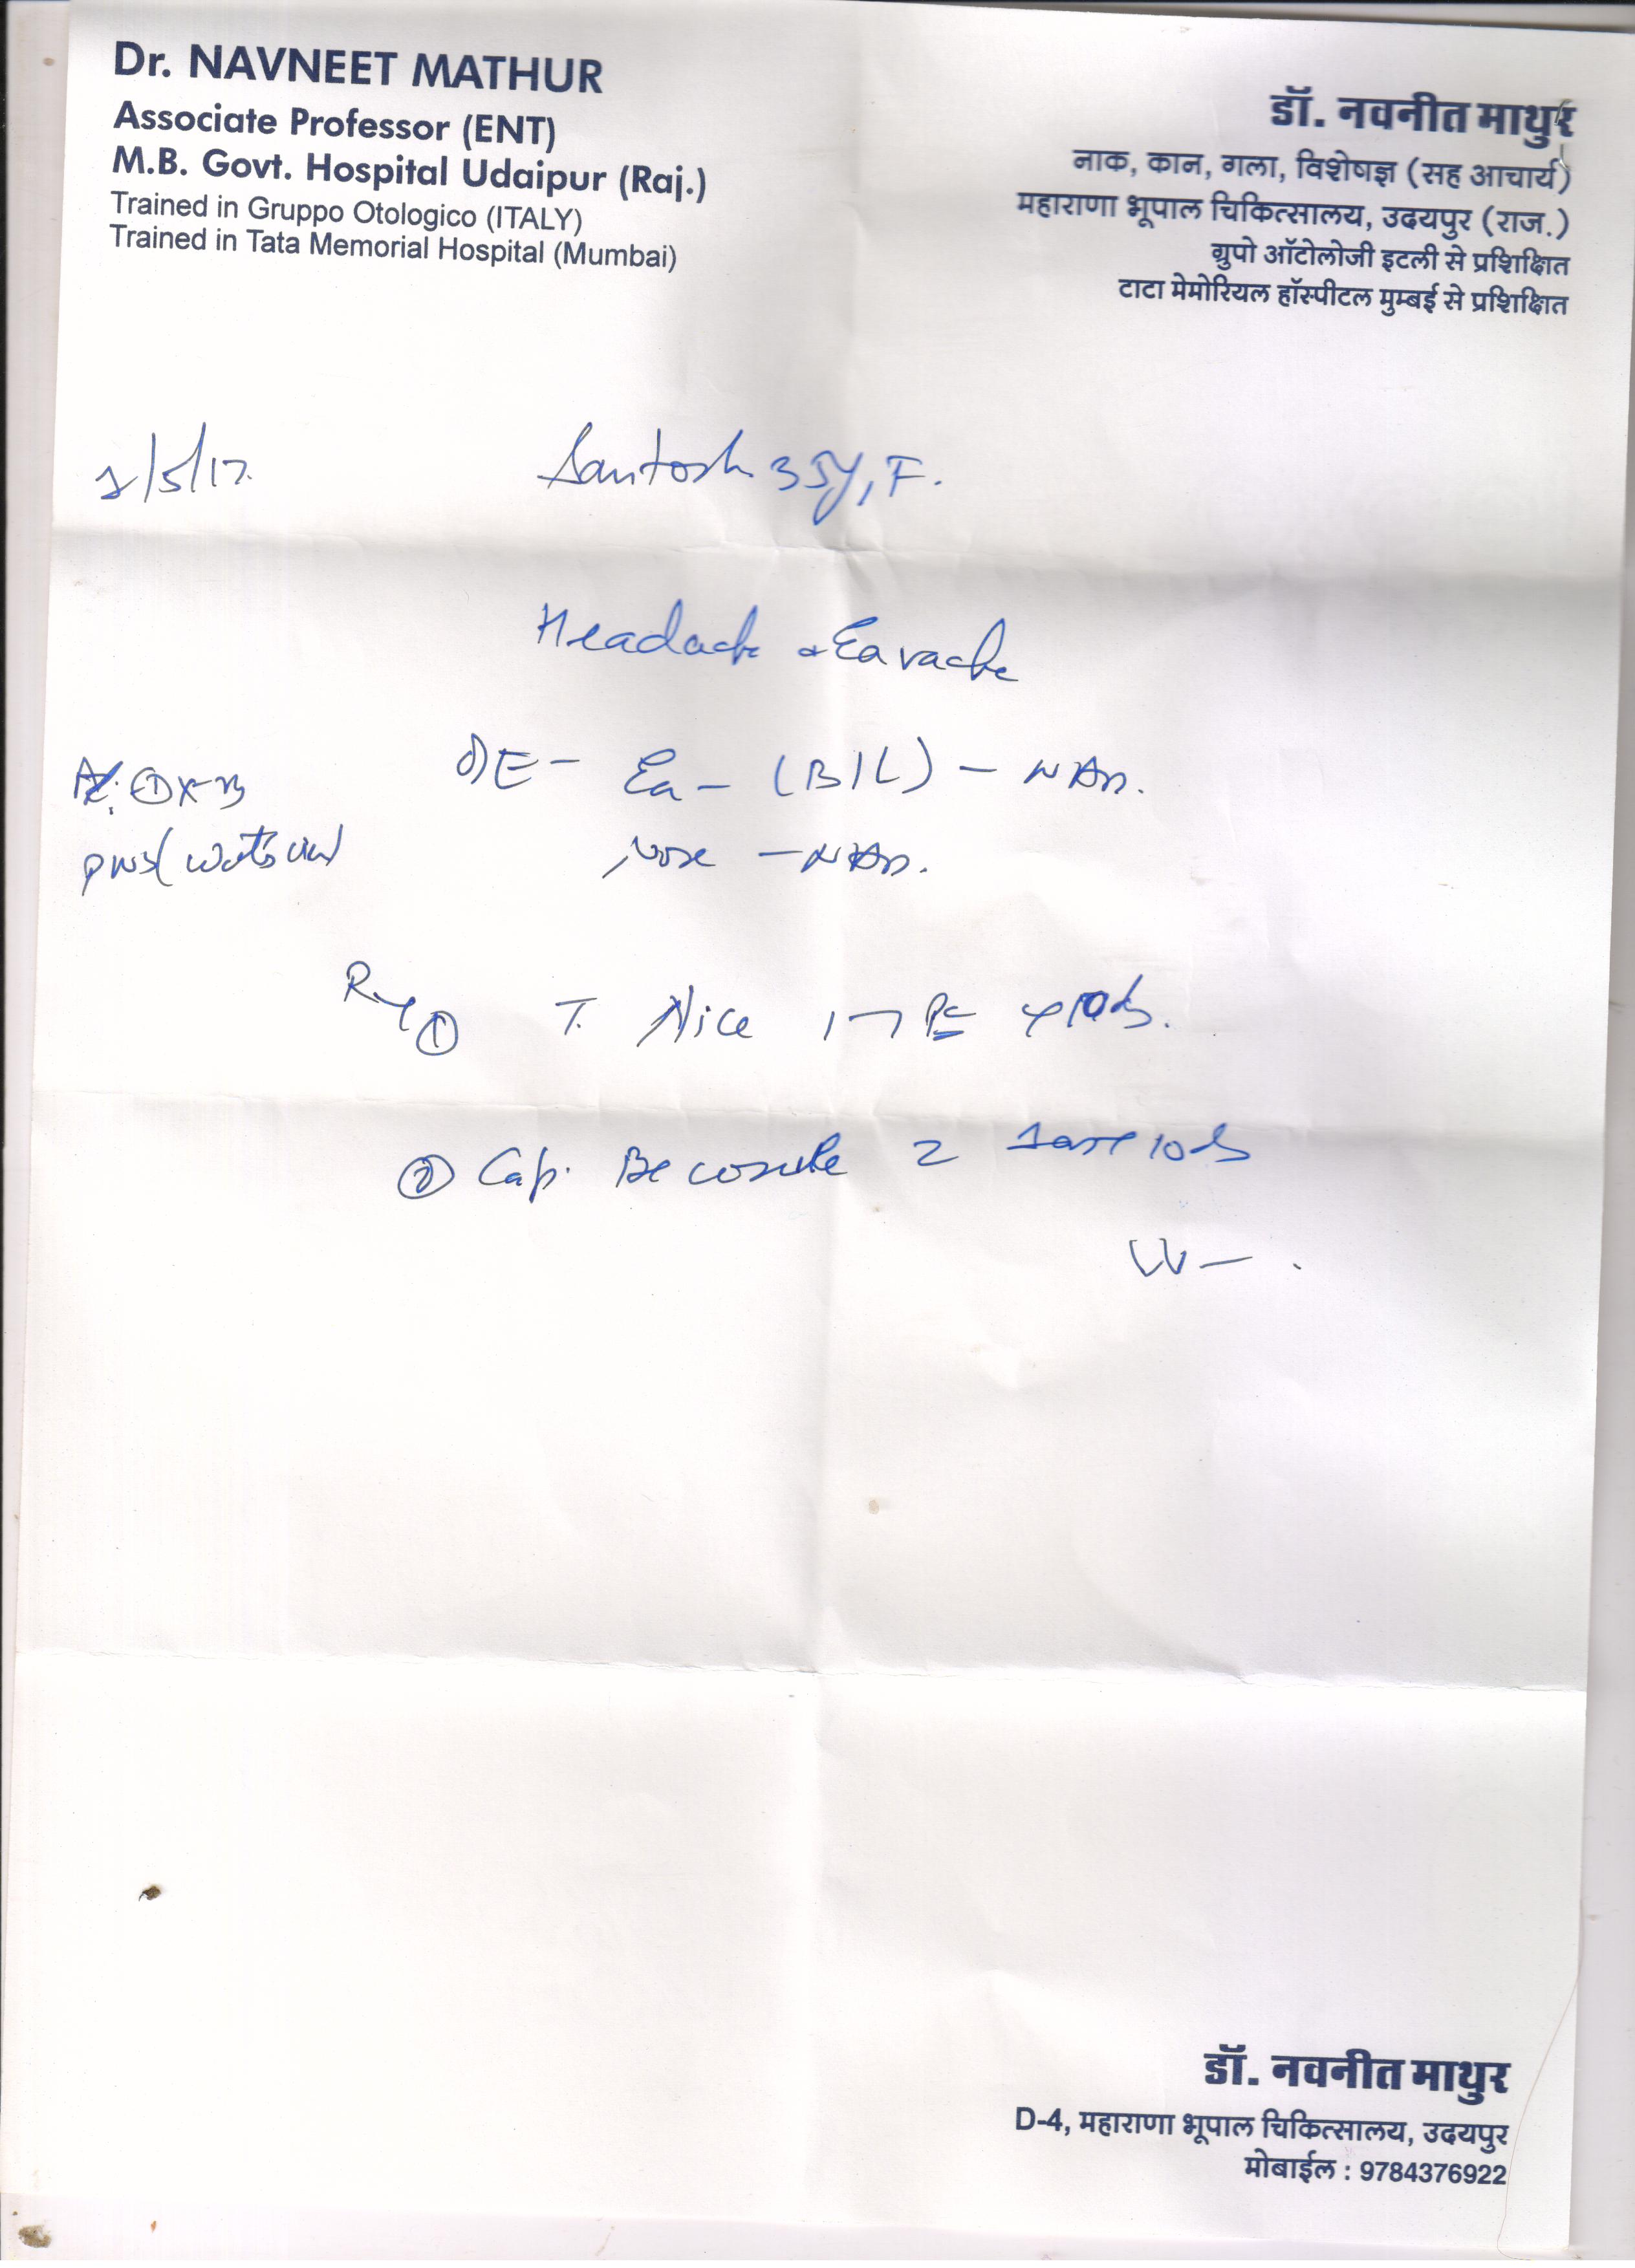 Dr. NAVNEET MATHUR
Associate Professor (ENT)
M.B. Govt. Hospital Udaipur (Raj.)
Trained in Gruppo Otologico (ITALY)
Trained in Tata Memorial Hospital (Mumbai)
डॉ. नवनीत माथुर
नाक, कान, गला, विशेषज्ञ (सह आचार्य)
महाराणा भूपाल चिकित्सालय, उदयपुर (राज.)
ग्रुपो ऑटोलोजी इटली से प्रशिक्षित
टाटा मेमोरियल हॉस्पीटल मुम्बई से प्रशिक्षित
2/5/17.
Santosh 35y, F.
Headache & Earache
O/E - Ear - (B/L) - NAD.
Nose - NAD.
① X-ray
PNS (Water's view)
Rx ① T. Nice 10ds.
② Cap. Becosule 2 10ds
डॉ. नवनीत माथुर
D-4, महाराणा भूपाल चिकित्सालय, उदयपुर
मोबाईल : 9784376922